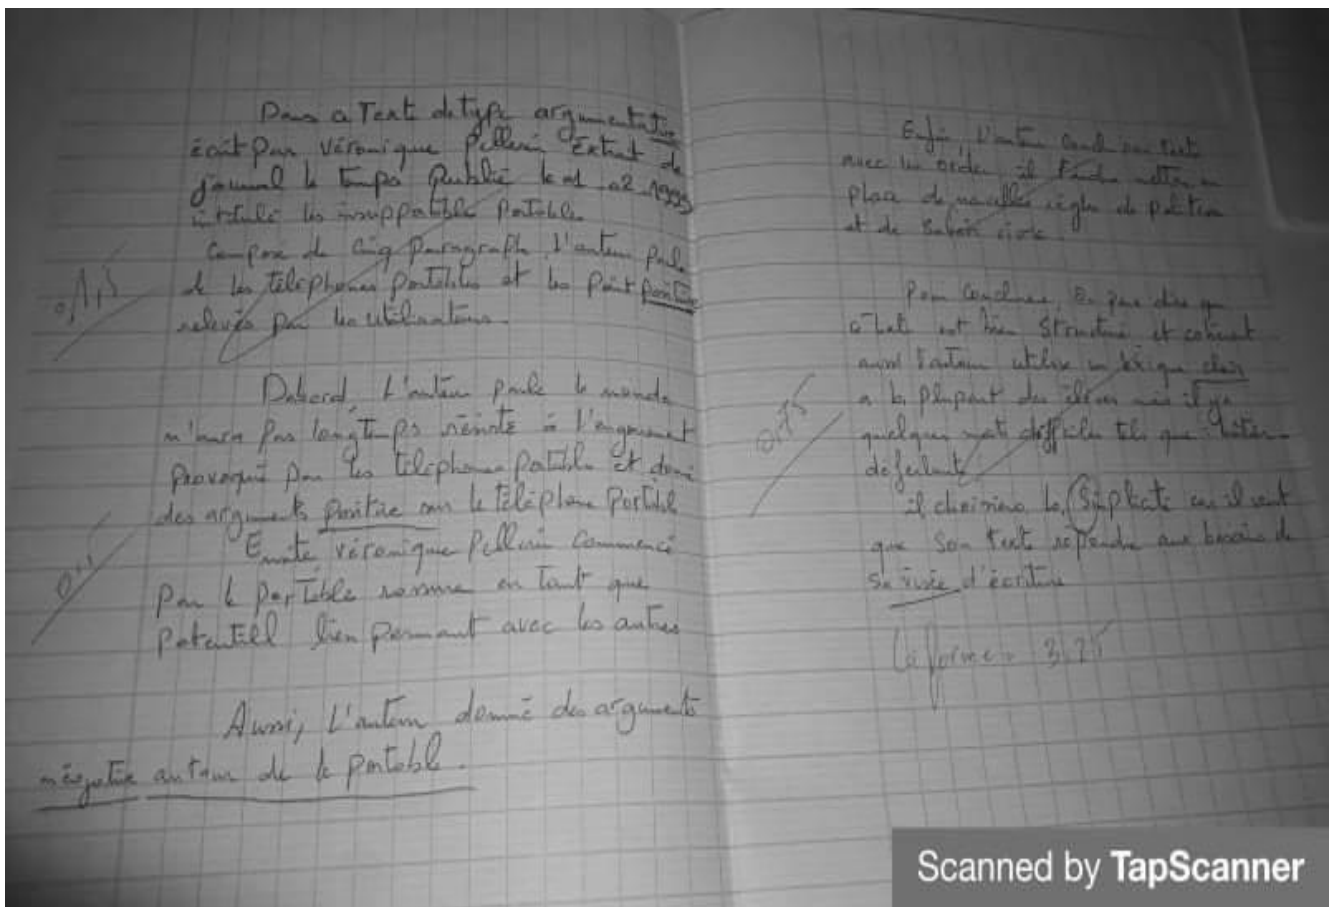 Dans a Text de type argumentative
écrit par véronique Pellerin Extrait de
journal le temps Publié le 01 .02 .1999
intitulé les insuppotible Potable.
Compose de Cinq Paragraphe L'auteur Parle
de les téléphones Portables et les Point positive
relevés par les utilisateurs.
0,1,5
Dabord L'auteur parle le monde
n'aura pas longTemps résisté à l'engouement
provoqué par les téléphones Portable et donné
des arguments positive sur le téléphone Portable
Ensuite véronique Pellerin Commencé
Par le porTable comme en Tant que
Potentiell lien permant avec les autres
Aussi, L'auteur donné des arguments
négative autour de le portable.
Enfin, L'auteur Conclu son texte
avec un ordre, il Faudra mettre en
place de nouvelles règle de Politesse
et de Savoir vivre.
Pour Conclure, On peu dire que
ce Text est bien Structuré et cohérent
aussi l'auteur utilise un lexique clair
a la plupart des élèves mais il ya
quelques mots difficiles tels que:
déferlante
0,75
il choisiera la Siplicité car il veut
que Son texte réponde aux besoins de
Sa visée d'écriture
La forme: 3,25
Scanned by TapScanner